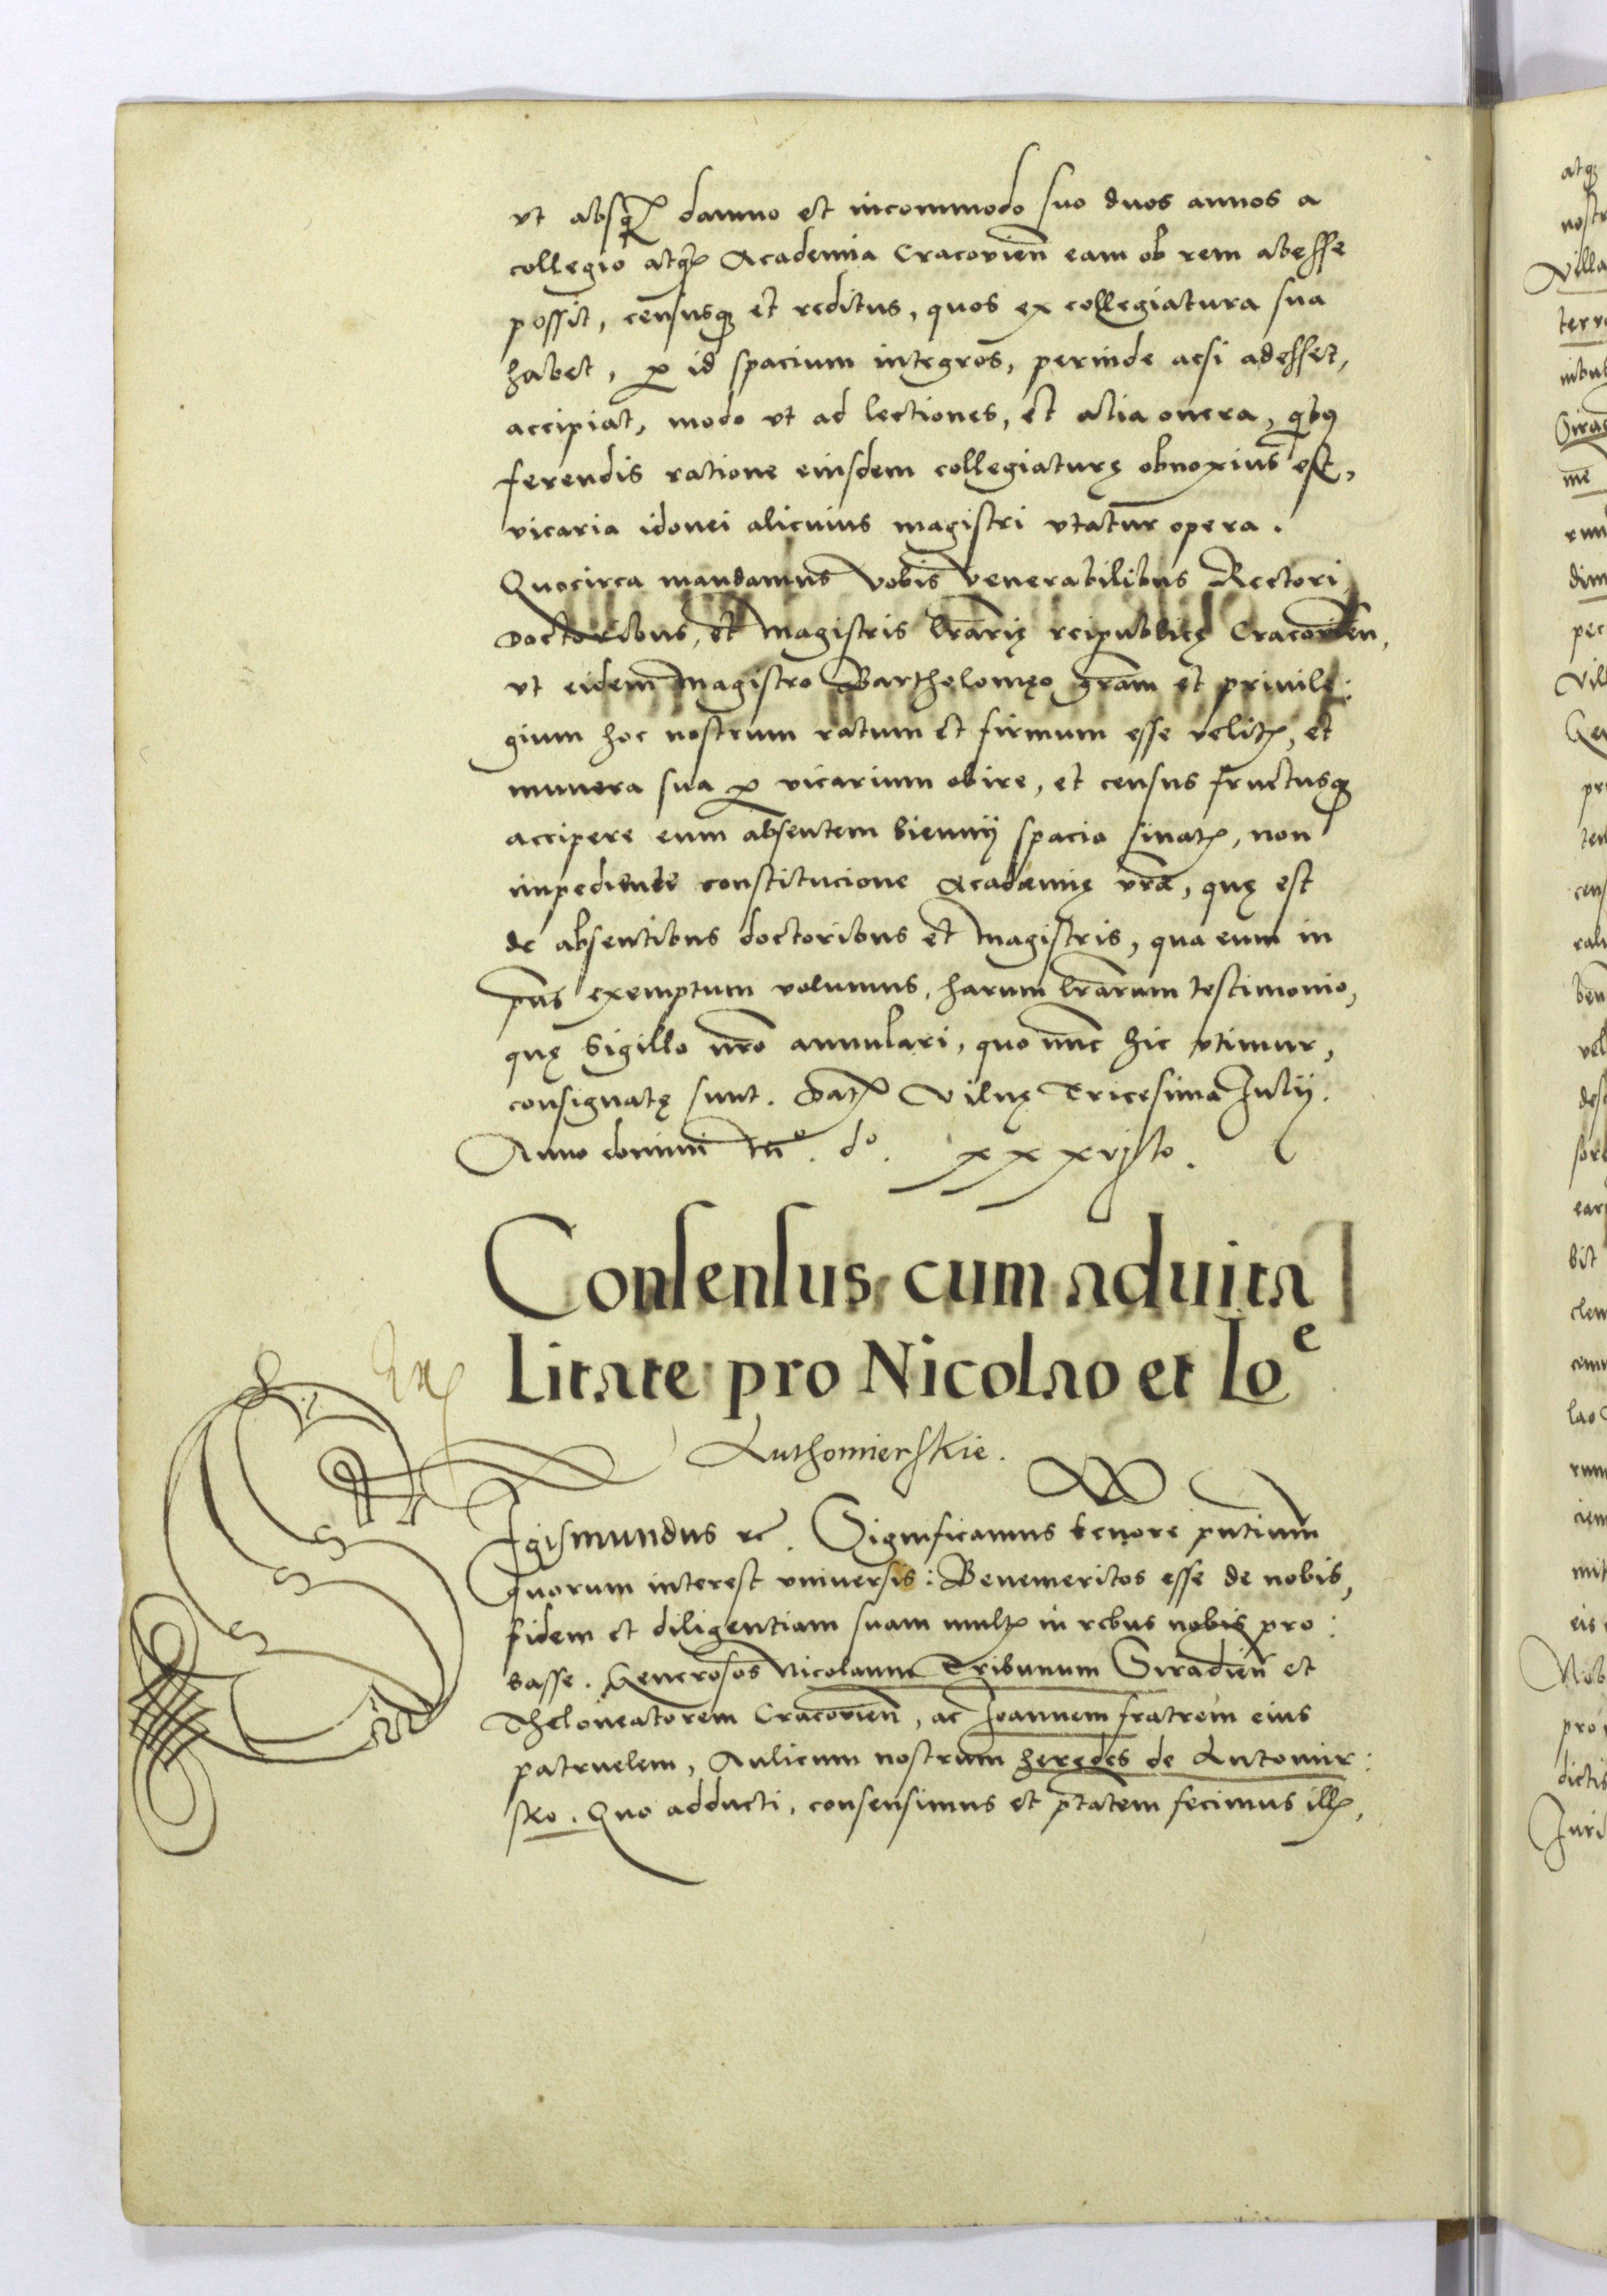 vt absq₃ damno et incommodo suo duos annos a
collegio atq₃ Academia Cracovien̄ eam ob rem abesse
possit, censusq₃ et reditus, quos ex collegiatura sua
habet, ꝑ id spacium integros, perinde acsi adesset,
accipiat, modo vt ad lectiones, et alia onera, qͥbꝰ
ferendis ratione eiusdem collegiaturę obnoxius est,
vicaria idonei alicuius magistri vtatur opera.
Quocirca mandamus Vobis Venerabilibus Rectori
Doctoribus, et Magistris l̄rarię reipublicę Cracovien̄,
vt eidem Magistro Bartholomęo gr̄am et privile:
gium hoc nostrum ratum et firmum esse velitꝭ, et
munera sua ꝑ vicarium obire, et census fructusq₃
accipere eum absentem biennij spacio sinatꝭ, non
impediente constitucione Academię vr̄ae, quę est
de absentibus doctoribus et Magistris, qua eum in
pn̄s exemptum volumus, harum l̄rarum testimonio,
quę Sigillo nr̄o annulari, quo nunc hic vtimur,
consignatę sunt. Datꝭ Vilnę Tricesima Julij.
Anno domini M°. d°. xxxvjto.
Consensus cum aduita
litate pro Nicolao et Ioe
Luthomierskie.
Sigismundus rc̄. Significamus tenore pn̄tium
quorum interest vniversis: Benemeritos esse de nobis,
fidem et diligentiam suam multꝭ in rebus nobis pro:
basse. Generosos Nicolaum Tribunum Siradien̄ et
Theloneatorem Cracovien̄, ac Joannem fratrem eius
patruelem, Aulicum nostrum heredes de Lutomir:
sko. Quo adducti, consensimus et p̄tatem fecimus illꝭ,